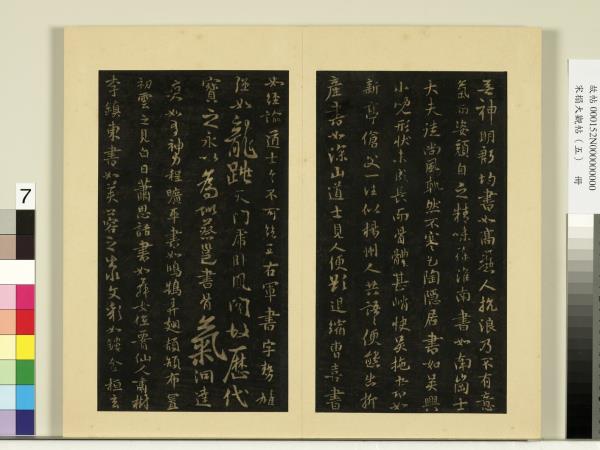 無神明殷均書如高麗人抗浪乃不有意
氣而姿顏自乏精味徐淮南書如南崗士
大夫徒尚風軌然不寒乞陶隱居書如吳興
小兒形狀未成長而骨體甚峭快吳施書如
新亭傖父一往似楊州人共語便態出柳
產書如深山道士見人便欲退縮曹喜書
如經論道士言不可絕王右軍書字勢雄
強如龍跳天門虎臥鳳閣故歷代
寶之永以為訓蔡邕書骨氣洞達
爽爽如有神力程曠平書如鴻鵠弄翅頡頏布置
初雲之見白日蕭思話書如舞女低腰仙人嘯樹
李鎮東書如芙蓉之出水文彩如鏤金桓玄
故帖000152N000000000
宋榻大觀帖(五) 冊
7